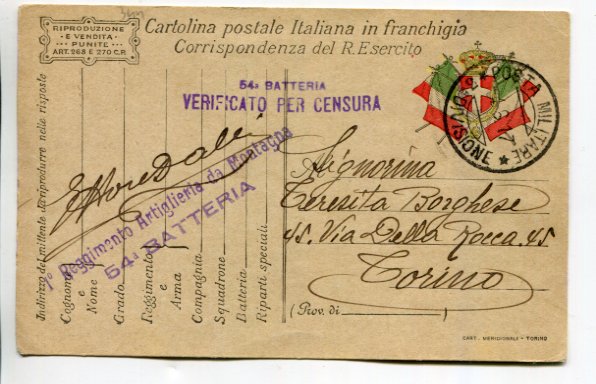 RIPRODUZIONE
E VENDITA
PUNITE
ART. 268 E 270 C.P.
Cartolina postale Italiana in franchigia
Corrispondenza del R. Esercito
54a BATTERIA
VERIFICATO PER CENSURA
POSTA MILITARE
DIVISIONE
1° Reggimento Artiglieria da Montagna
54a BATTERIA
Signorina
Teresita Borghese
45. Via Della Rocca. 45
Torino
(Prov. di
)
Indirizzo del mittente da riprodurre nelle risposte
Cognome
e
Nome
Grado
Reggimento
e
Arma
Compagnia
Squadrone
Batteria
Riparti speciali
CART. MERIDIONALI - TORINO